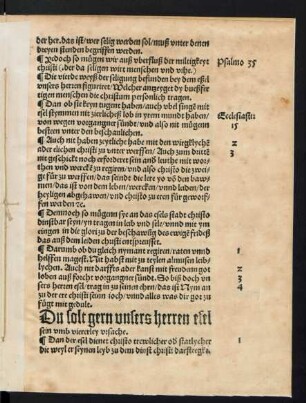 der her. das ist/ wer selig werden sol/ muß vnter denen
dreyen stenden begriffen werden.
¶ Jedoch so mügen wir auß vberfluß der miltigkeyt
christi (der da seligen wirt menschen vnd vihe.)
Psalmo 35
¶ Die vierde weyß der seligung befunden bey dem esel
vnsers herren figuriret/ Welcher anzeyget dy buessfer
tigen menschen die christum personlich tragen.
¶ Dan ob sie keyn tugent haben/ auch vbel singen mit
esel stymmen nit zierlicheß lob in yrem mundt haben/
Ecclesiasti
von wegen vorgangner sünde/ vnd also nit mügent
15
besteen vnter den beschaulichen.
¶ Auch nit haben zeytliche habe mit den wirglych
2
der elichen christi zu vnter werffen/ Auch zum dritte
3
nit geschickt noch erfordert sein auß leuthe mit wor
then vnd werck zu regiren/ vnd also christo die zweyge
für zu werffen/ das seindt die lere so vo den baw
men/ das ist von dem leben/ wercken/ vnnd leiden/ der
heyligen abgehawen/ vnd christo zu eren für geworf
fen werden ꝛc.
¶ Demnoch so mügenn sye an das esels stadt christo
dinstbar seyn/ yn tragen in leib vnd sele/ vnnd mit ym
ingen in die glori zu der beschawung des ewigē frideß
das auß dem leiden christi entspringet.
¶ Darumb ob du gleich nymant regirest/ raten vnnd
1
helffen magest. Nit habst mit zu teylen almusen leib
2
lychen. Auch nit darffst ader kanst mit freuden got
3
loben auß forcht vorgangner sünde. So biß doch vn
3
sers herren esel/ trag in zu seinen ehen/ das ist Nym an
4
zu der ere christi seinn ioch/ vnnd alles was dir got zu
fügt mit gedult.
Du solt gern vnsers herren esel
sein vmb vierrley vrsache.
¶ Dan der esel dienet christo trewlicher ob statlycher
1
die weyl er seynen leyb zu dem dinst christi darstreckte.